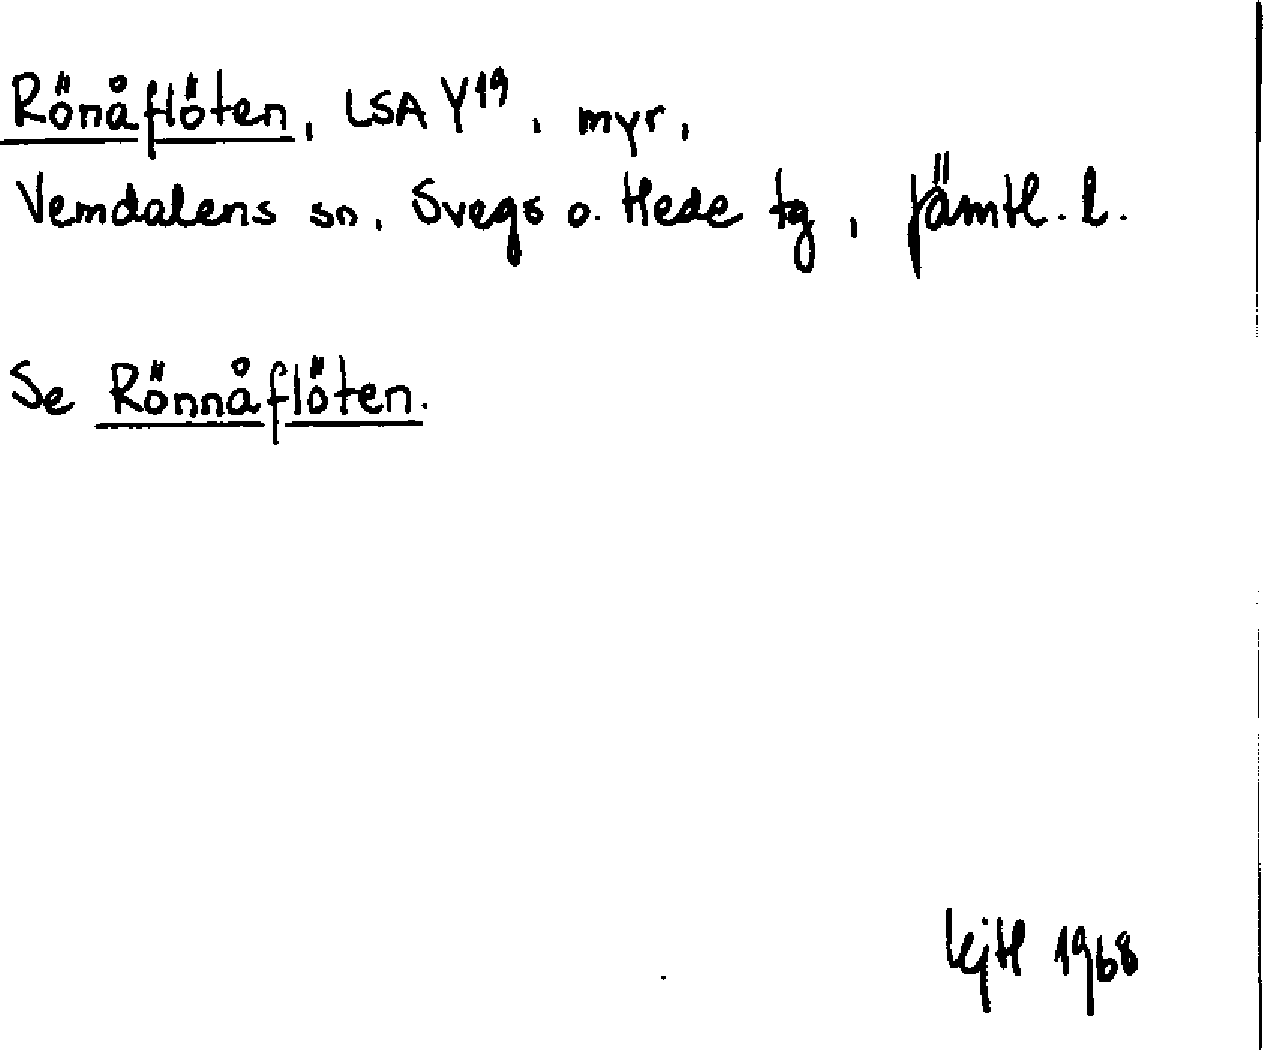 Rönåflöten, LSA Y19, myr,
Vemdalens sn, Svegs o. Hede tg, Jämtl. l.
Se Rönnåflöten.
1968